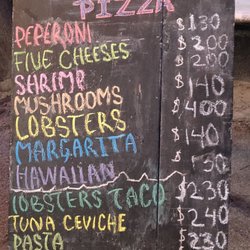 PIZZA
PEPERONI $130
FIVE CHEESES $200
SHRIMP $200
MUSHROOMS $140
LOBSTERS $400
MARGARITA $140
HAWAIIAN
LOBSTERS TACO $230
TUNA CEVICHE $240
PASTA $230